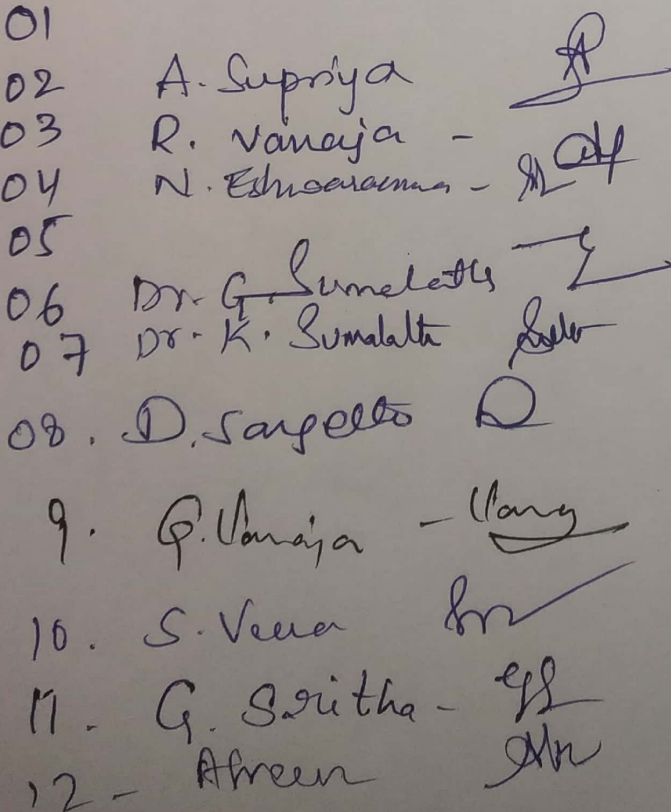 01
02 A. Supriya
03 R. Vanaja -
04 N. Eshwaramma -
05
06 Dr. G. Sumalatha
07 Dr. K. Sumalatha
08. D. Sangeetha
9. G. Vanaja -
10. S. Veena
11. G. Sritha -
12 - Afreen